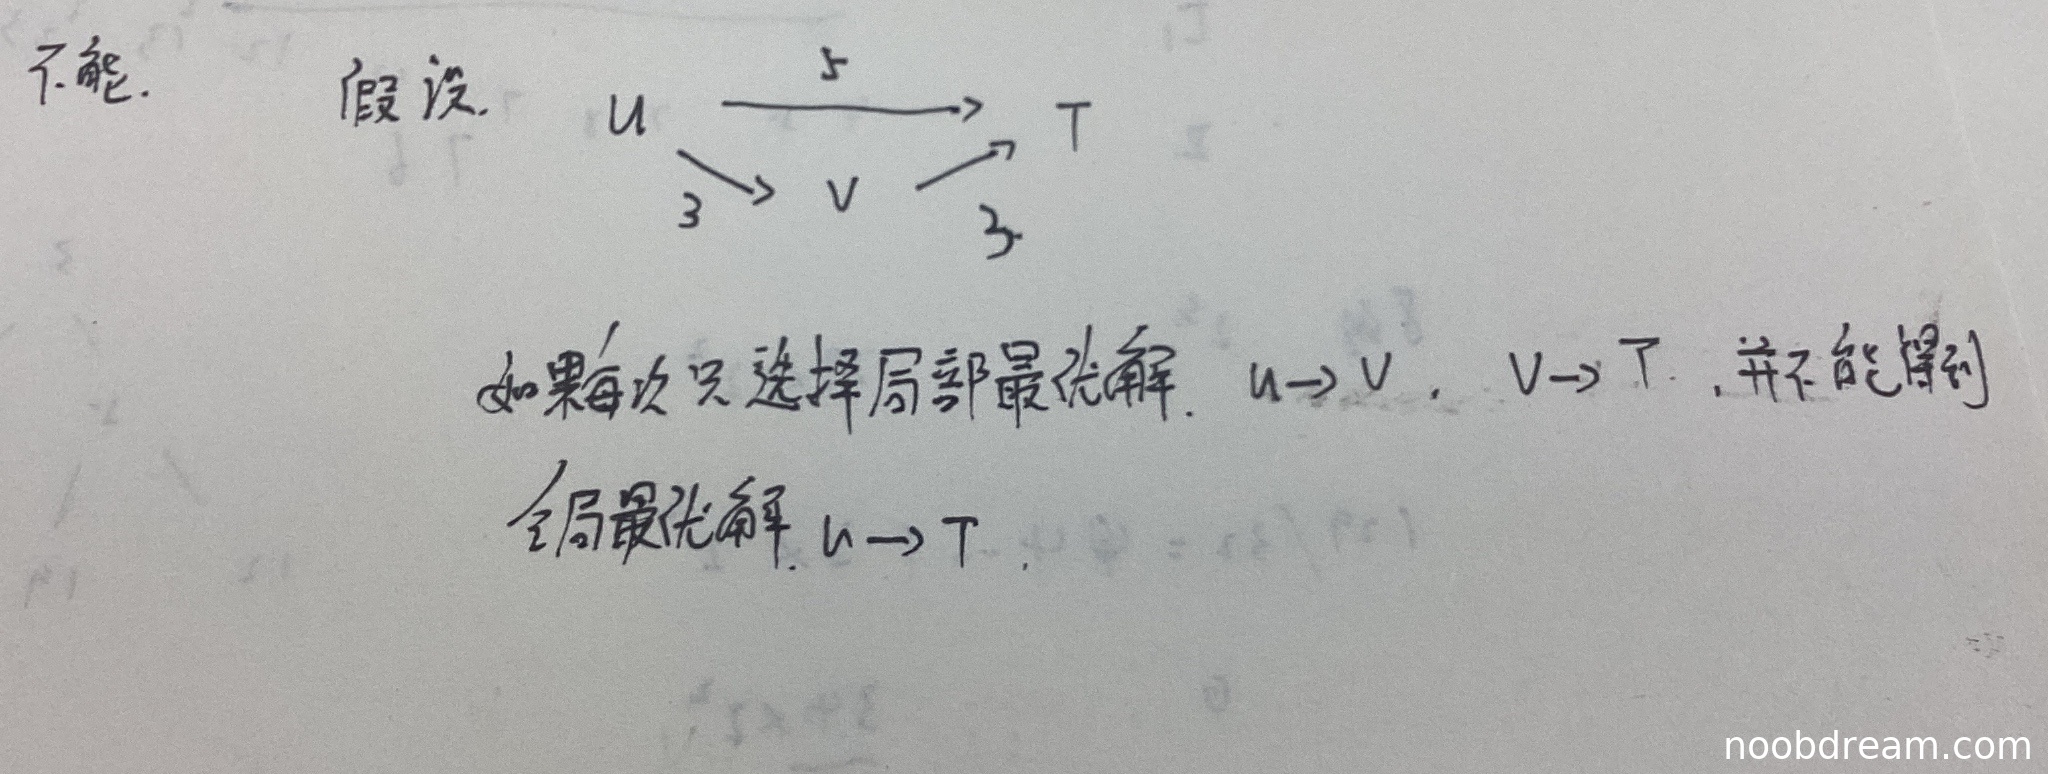 不能. 假设. U 5 T
3 V 3.
如果每次只选择局部最优解. u→V. V→T. 并不能得到
全局最优解. u→T.
noobdream.com